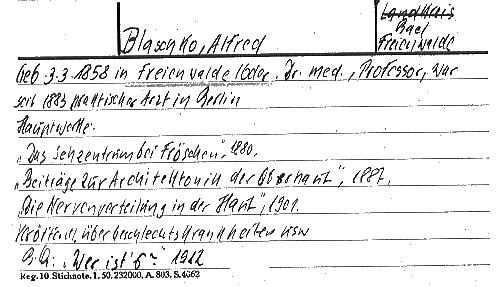 Blaschko, Alfred
Landkreis
Bad
Freienwalde
Geb. 3.3.1858 in Freienwalde/Oder. Dr. med., Professor, war
seit 1883 praktischer Arzt in Berlin
Hauptwerke:
„Das Sehzentrum bei Fröschen", 1880,
„Beiträge zur Architektonik der Oberhaut", 1887,
„Die Nervenverteilung in der Haut", 1901.
Veröffentl. über Geschlechtskrankheiten usw
"Wer ist's?" 1912
Reg. 10. Stichnote. 1. 50. 232000. A. 803. S. 4062